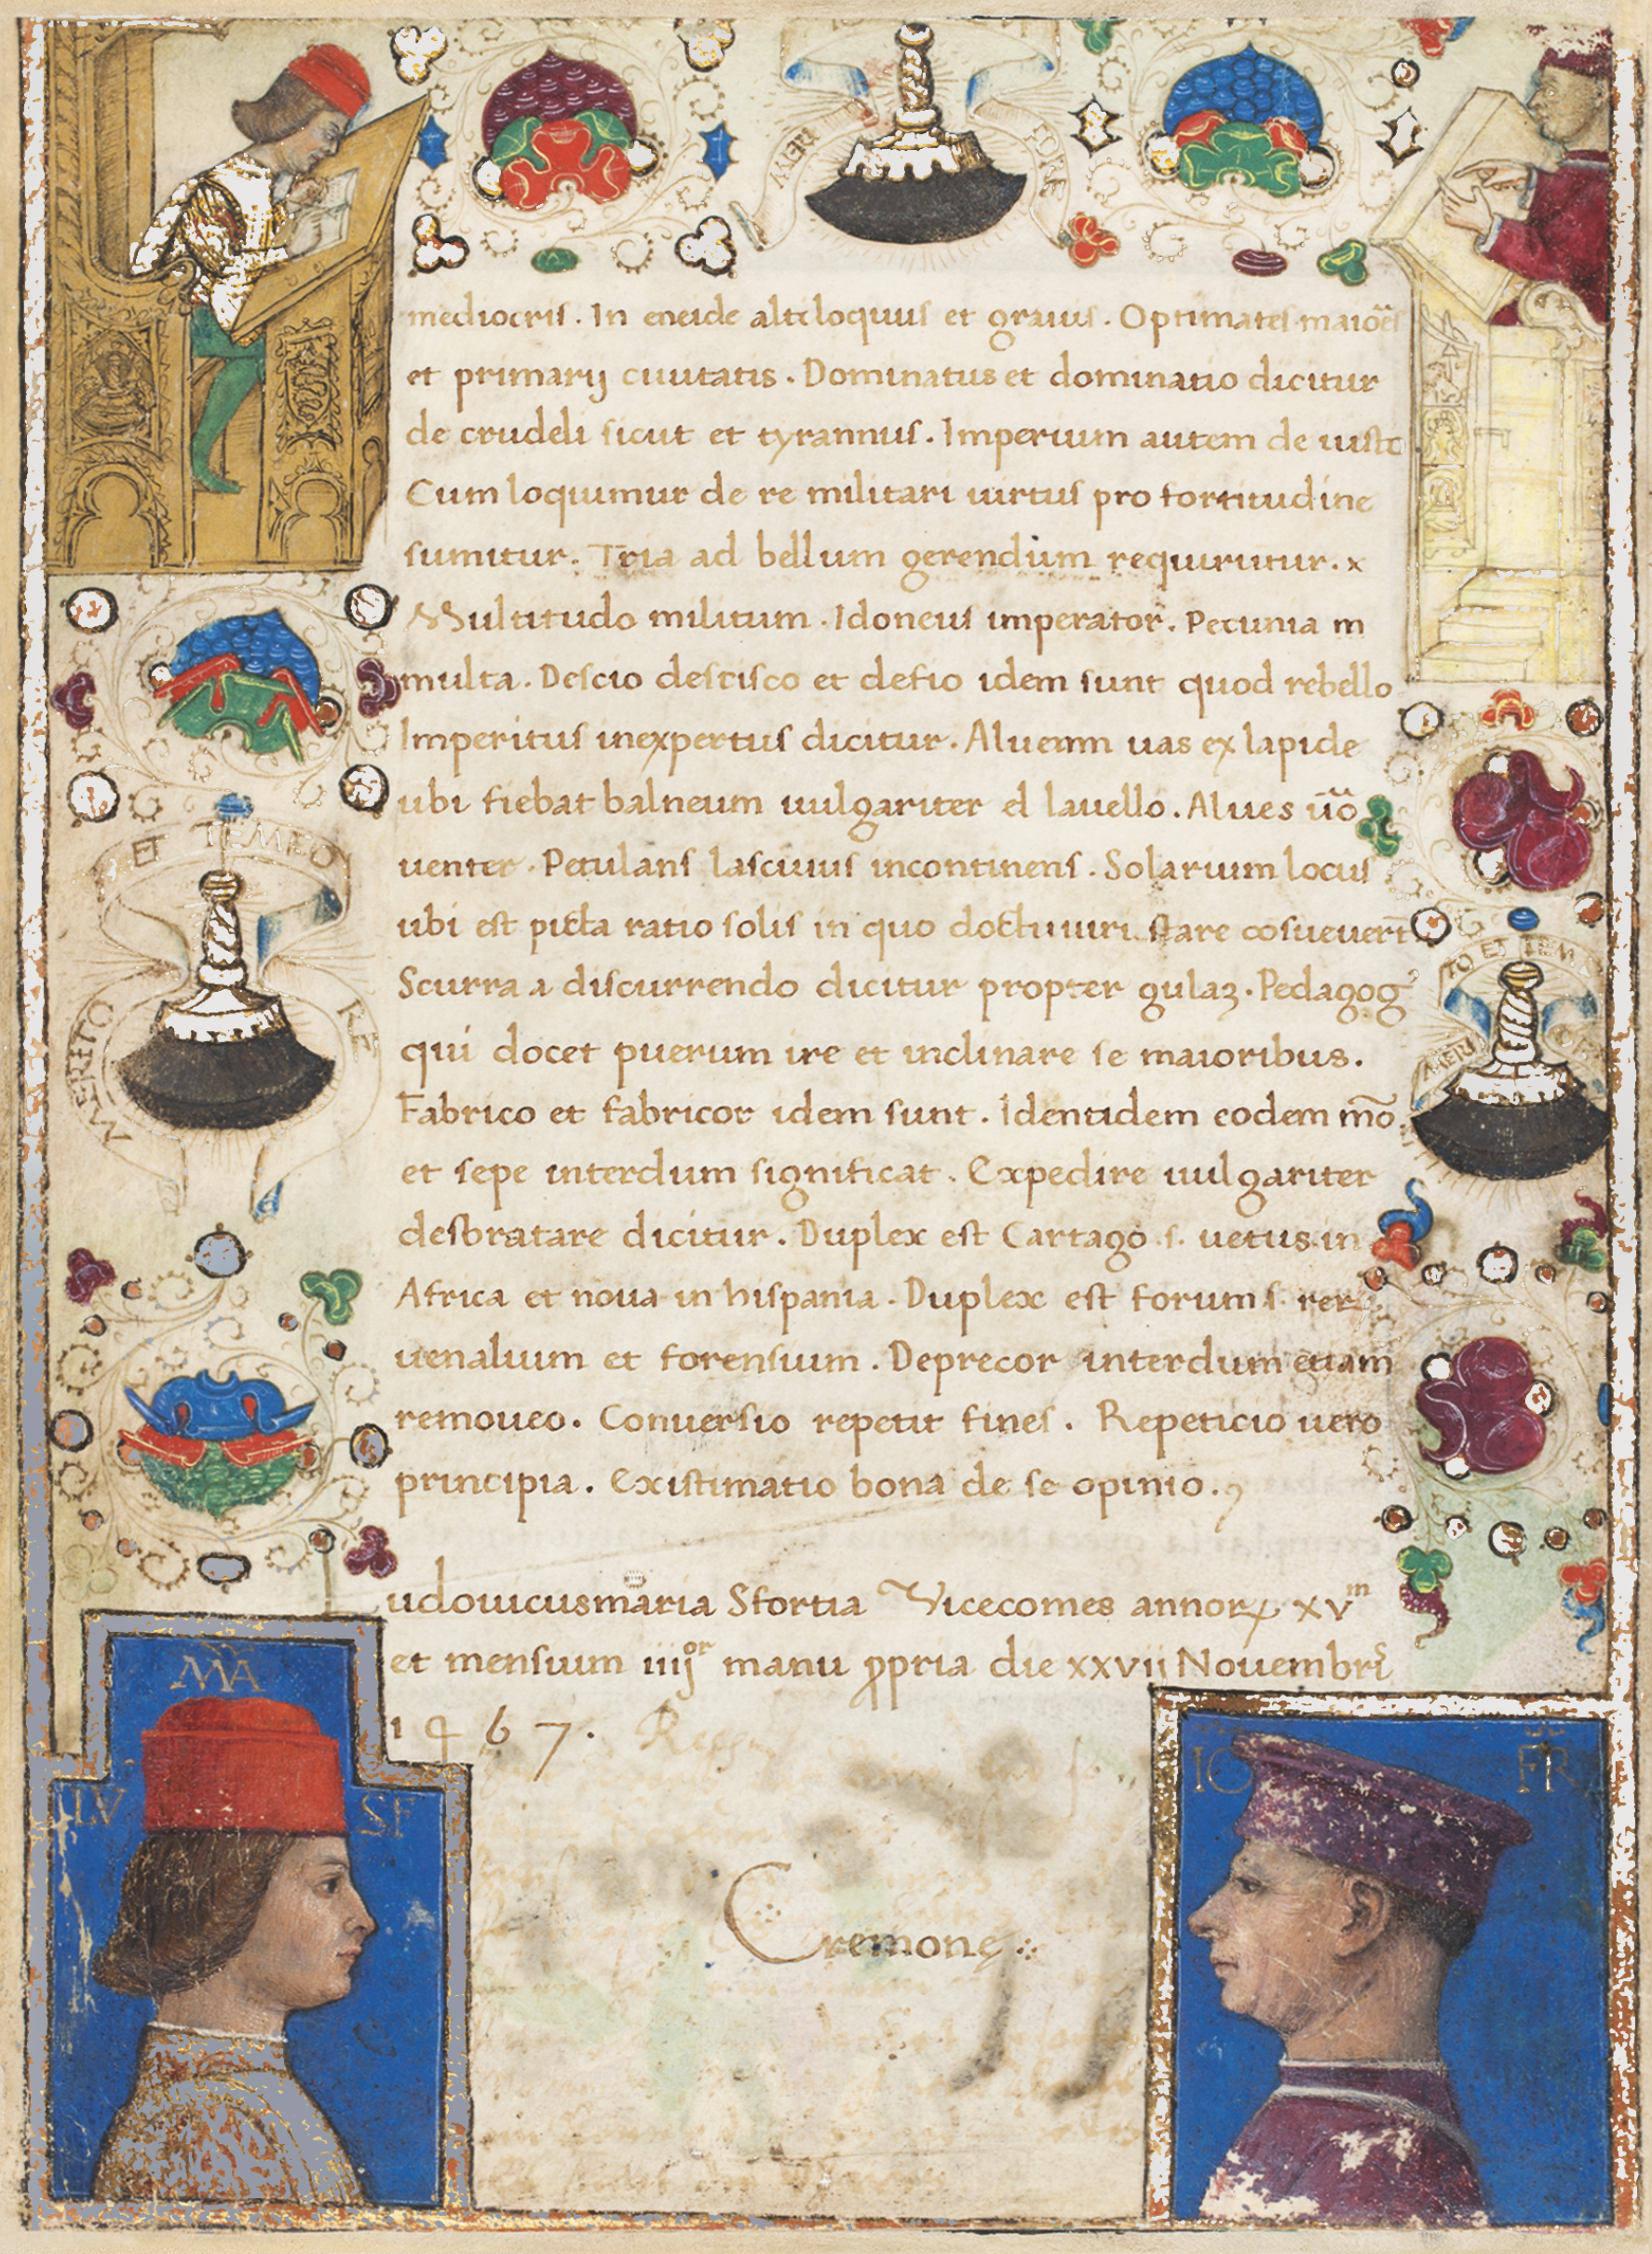 MERI
FORE
mediocris. In eneide altiloquus et grauis. Optimates maio͞es
et primarij ciuitatis. Dominatus et dominatio dicitur
de crudeli sicut et tyrannus. Imperium autem de iusto
Cum loquimur de re militari uirtus pro fortitudine
sumitur. Tria ad bellum gerendum requirũtur. x
Multitudo militum. Idoneus imperator. Pecunia m
multa. Descio descisco et defio idem sunt quod rebello
Imperitus inexpertus dicitur. Alueum uas ex lapide
ubi fiebat balneum uulgariter el lauello. Alues u͞o
uenter. Petulans lasciuus incontinens. Solarium locus
ubi est picta ratio solis in quo docti uiri stare cosueuer͞t
Scurra a discurrendo dicitur propter gulaꝫ. Pedagogꝰ
qui docet puerum ire et inclinare se maioribus.
Fabrico et fabricor idem sunt. Identidem eodem m͞o
et sepe interdum significat. Expedire uulgariter
desbratare dicitur. Duplex est Cartago .s. uetus in
Africa et noua in hispania. Duplex est forum .s. rerꝝ
uenalium et forensium. Deprecor interdum etiam
remoueo. Conuersio repetit fines. Repeticio uero
principia. Existimatio bona de se opinio.
ET TEMPO
MERITO
RE
TO ET TEM
MERI
udouicusmaria Sfortia Vicecomes annorꝝ xvᵐ
et mensium iiijᵒʳ manu ꝓpria die xxvij Nouembris
1467.
Cremone
MA
LV SF
IO FR